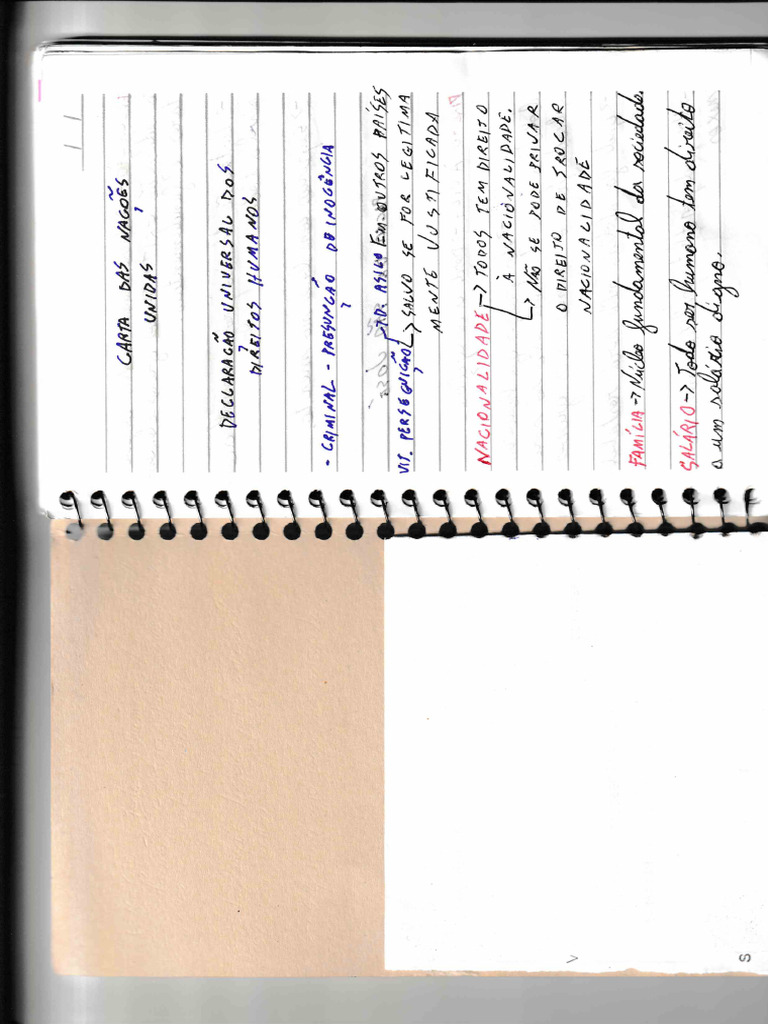 CARTA DAS NAÇÕES
UNIDAS
DECLARAÇÃO UNIVERSAL DOS
DIREITOS HUMANOS
- CRIMINAL - PRESUNÇÃO DE INOÇÊNCIA
VIT. PERSEGUIÇÃO → T.D. ASILO EM OUTROS PAÍSES
↳ SALVO SE FOR LEGITIMA
MENTE JUSTIFICADA
NACIONALIDADE → TODOS TEM DIREITO
À NACIONALIDADE.
↳ NÃO SE PODE PRIVAR
O DIREITO DE TROCAR
NACIONALIDADE
FAMÍLIA → Núcleo fundamental da sociedade.
SALÁRIO → Todo ser humano tem direito
a um salário digno.